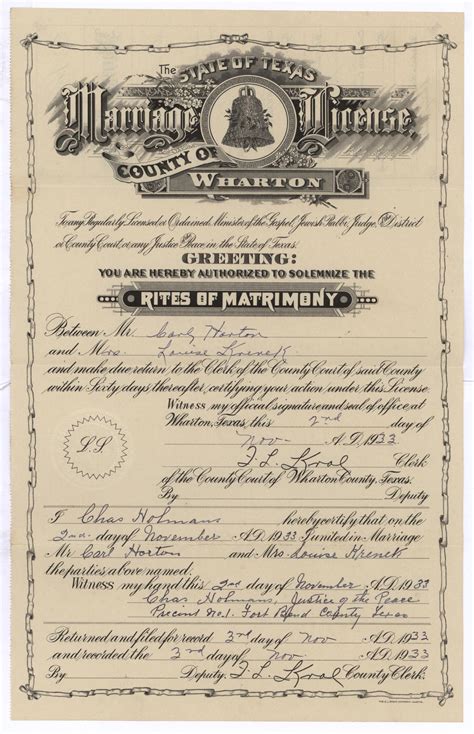 The STATE OF TEXAS
Marriage License,
COUNTY OF
WHARTON
To any Regularly Licensed or Ordained Minister of the Gospel, Jewish Rabbi, Judge, of District
or County Court, or any Justice of Peace in the State of Texas:
GREETING:
YOU ARE HEREBY AUTHORIZED TO SOLEMNIZE THE
RITES OF MATRIMONY
Between Mr. Carl Horton
and Mrs. Louise Krenek
and make due return to the Clerk of the County Court of said County
within Sixty days, thereafter, certifying your action, under this License.
Witness my official signature and seal of office, at
Wharton, Texas, this 2nd day of
Nov- A.D. 1933
L.S.
F. L. Kral Clerk
of the County Court of Wharton County, Texas.
By Deputy
I Chas Hohmans hereby certify that on the
2nd day of November A.D. 1933 I united in Marriage
Mr Carl Horton and Mrs Louise Krenek
the parties above named.
Witness my hand this 2nd day of November A.D. 1933
Chas Hohmans, Justice of the Peace
Precint No.1. Fort Bend County Texas
Returned and filed for record 3rd day of Nov A.D. 1933
and recorded the 3rd day of Nov A.D. 1933
By Deputy. F. L. Kral County Clerk.